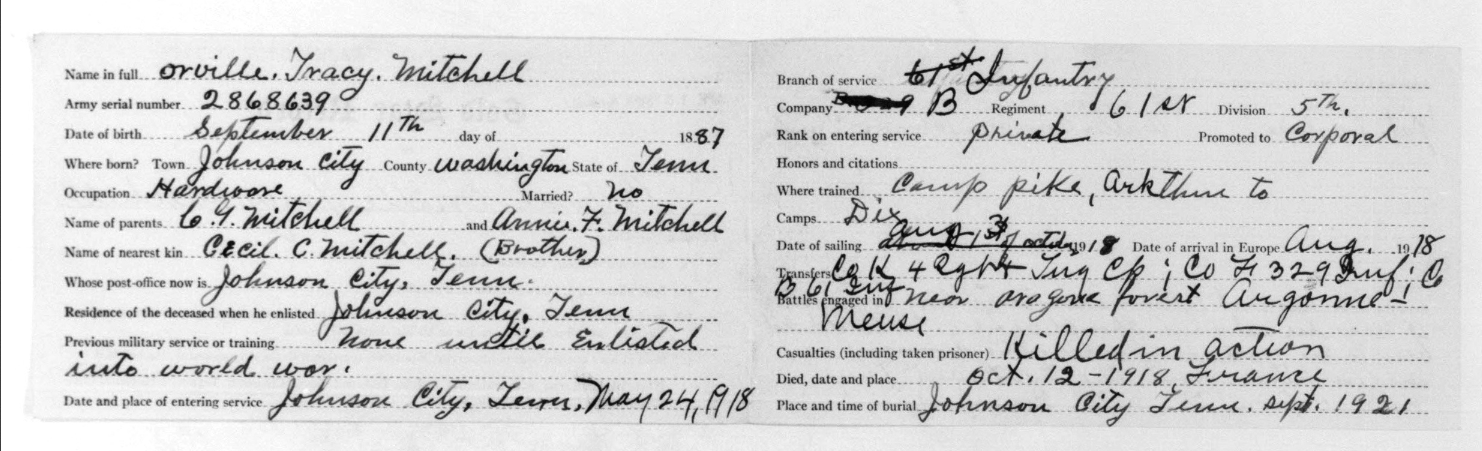 Name in full orville. Tracy. Mitchell
Army serial number 2868639
Date of birth September 11th day of 1887
Where born? Town Johnson City County Washington State of Tenn
Occupation Hardware Married? no
Name of parents C. G. Mitchell and Annie. F. Mitchell
Name of nearest kin Cecil. C. Mitchell. (Brother)
Whose post-office now is Johnson City, Tenn.
Residence of the deceased when he enlisted Johnson City, Tenn
Previous military service or training None until Enlisted
into world war.
Date and place of entering service Johnson City, Tenn, May 24, 1918
Branch of service 61st Infantry
Company B Regiment 61st Division 5th.
Rank on entering service private Promoted to Corporal
Honors and citations
Where trained Camp pike, Ark then to
Camps Dix
Date of sailing Aug 1918 Date of arrival in Europe Aug. 1918
Transfers Co K 4 Rgt Tng Cp; Co F 329 Inf; Co
B 61 Inf
Battles engaged in near aragone forest Argonne-
Meuse
Casualties (including taken prisoner) Killed in action
Died, date and place oct. 12-1918, France
Place and time of burial Johnson City Tenn. sept. 1921